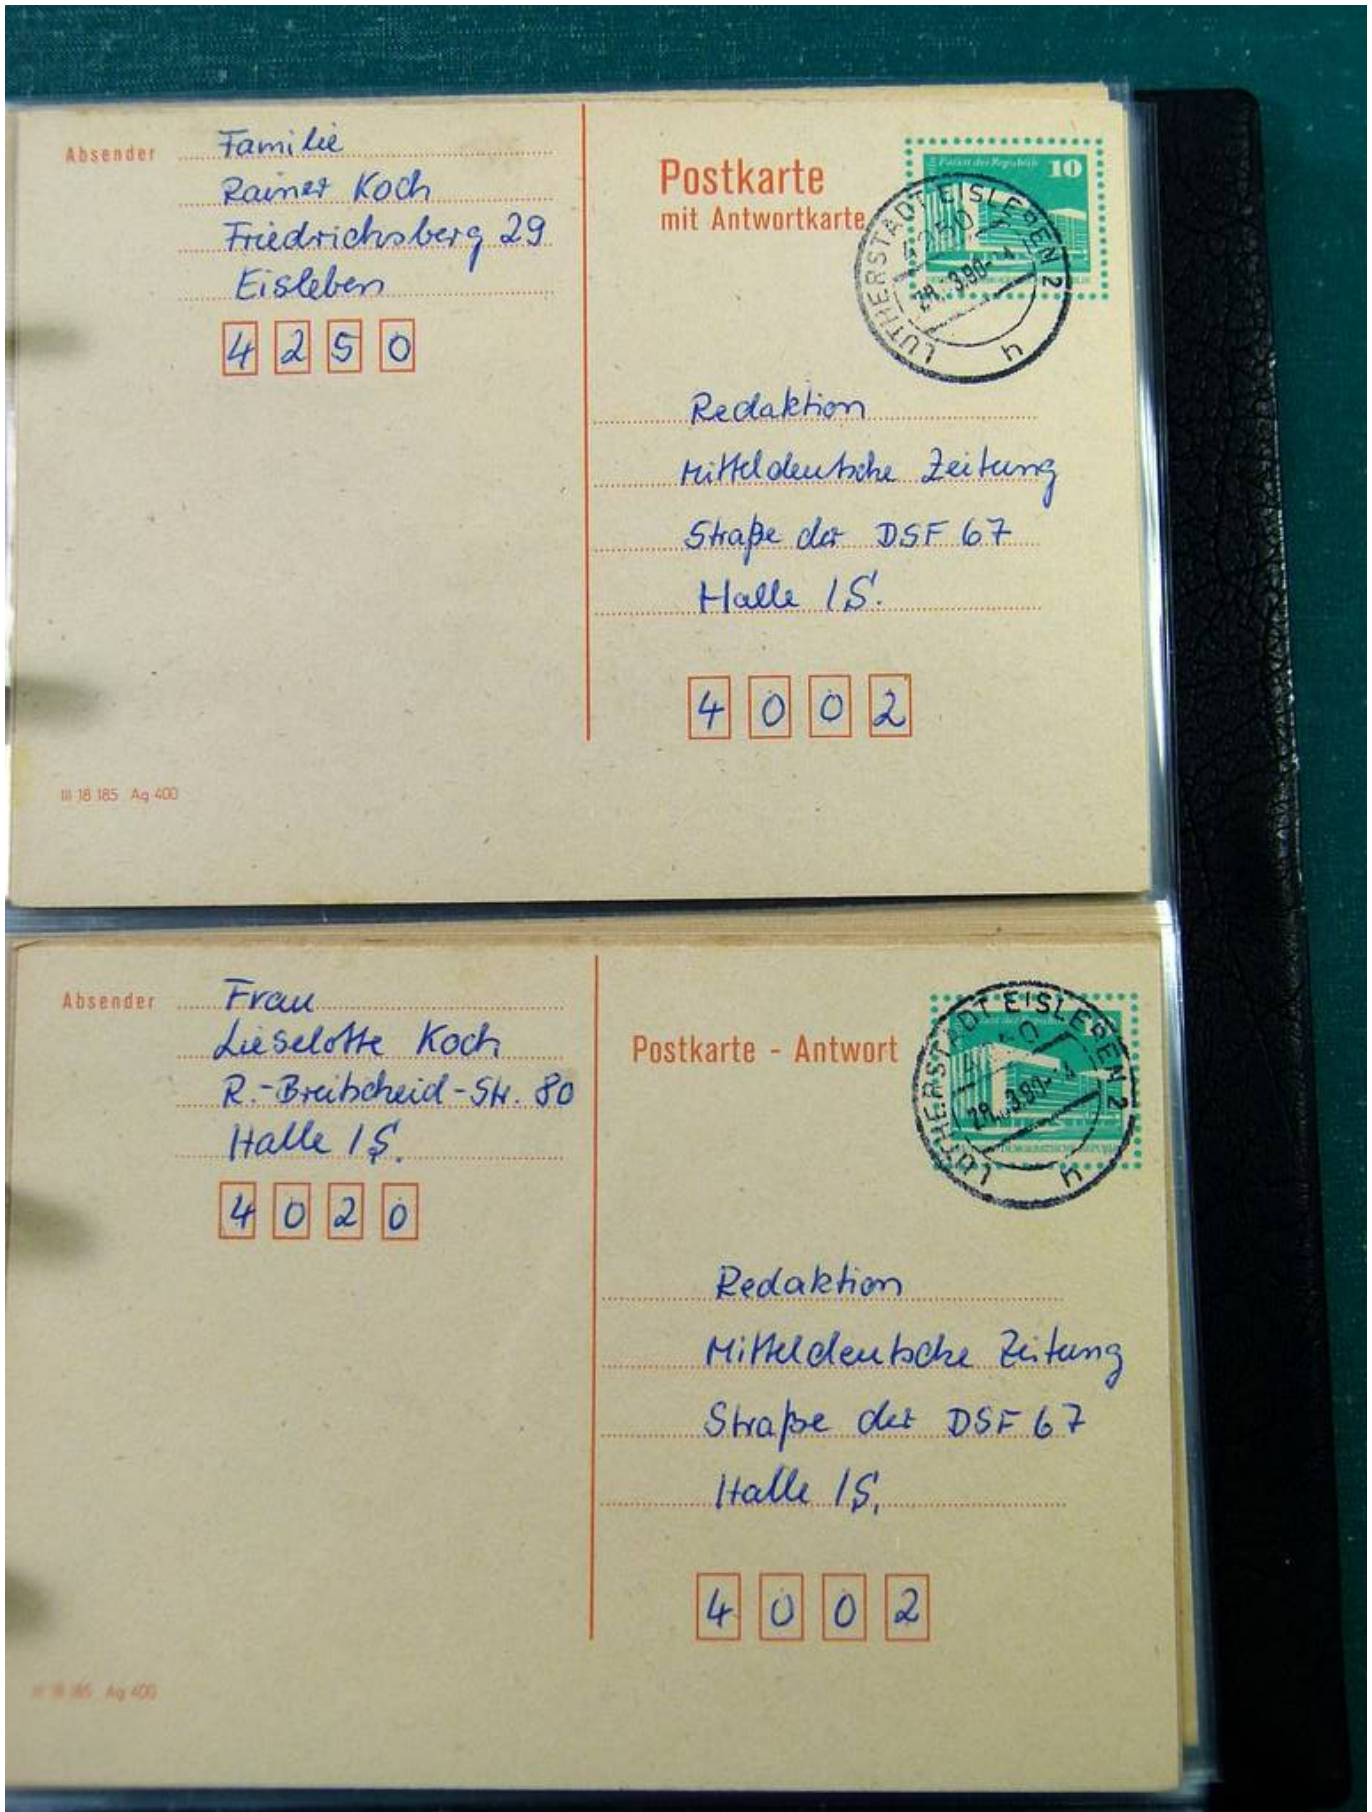 Absender Familie
Rainer Koch
Friedrichsberg 29
Eisleben
4250
Postkarte
mit Antwortkarte
Palast der Republik 10
LUTHERSTADT EISLEBEN 2
4250
h
Redaktion
Mitteldeutsche Zeitung
Straße der DSF 67
Halle /S.
4002
III 18 185 Ag 400
Absender Frau
Lieselotte Koch
R.-Breitscheid-Str. 80
Halle /S.
4020
Postkarte - Antwort
LUTHERSTADT EISLEBEN 2
h
Redaktion
Mitteldeutsche Zeitung
Straße der DSF 67
Halle /S.
4002
III 18 185 Ag 400